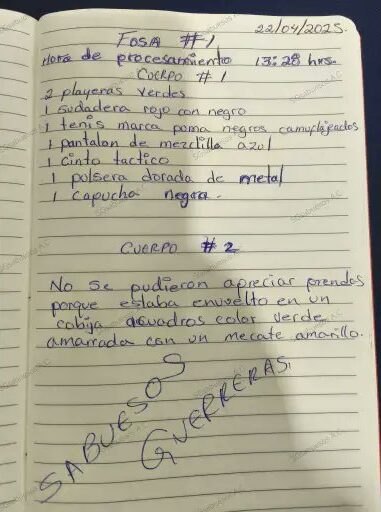 22/04/2025.
FOSA #1
Hora de procesamiento 13:28 hrs.
CUERPO #1
2 playeras verdes
1 sudadera rojo con negro
1 tenis marca poma negros camuflajeados
1 pantalon de mezclilla azul
1 cinto tactico
1 polsera dorada de metal
1 capucha negra.
CUERPO #2
No se pudieron apreciar prendas
porque estaba envuelto en un
cobija acuadros color verde
amarrada con un mecate amarillo.
SABUESOS
GUERRERAS.